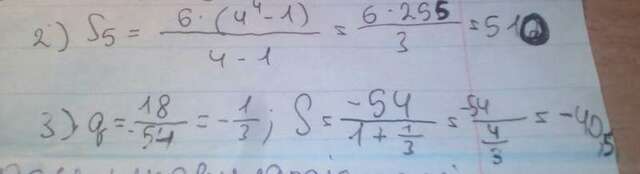 2) S₅ = 6·(4⁴-1) / 4-1 = 6·255 / 3 = 510
3) q = 18 / -54 = -1/3; S = -54 / 1+1/3 = -54 / 4/3 = -40,5